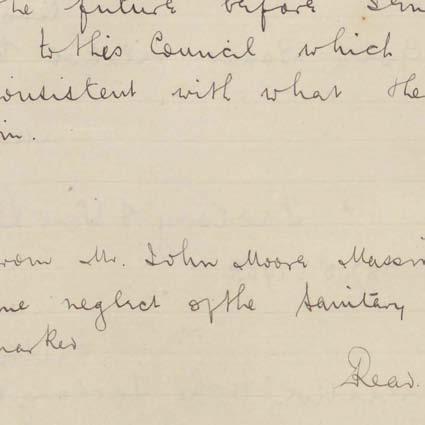 the future before sen
to this Council which
consistent with what the
in.
from Mr. John Moore Massi
me neglect of the Sanitary
marked
Read.